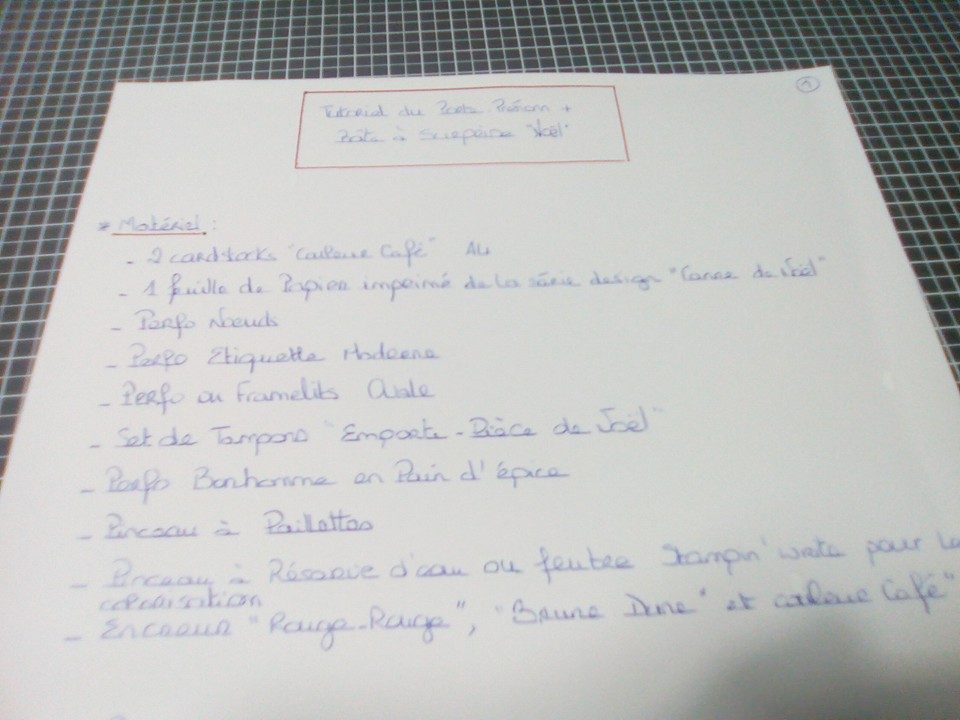 ①
Tutoriel du Porte Prénom +
Boîte à Surprise "Noël"
* Matériel :
- 2 cardstocks "Couleur Café" A4
- 1 feuille de Papier imprimé de la série design "Canne de Noël"
- Perfo Noeuds
- Perfo Etiquette Moderne
- Perfo ou Framelits Ovale
- Set de Tampons "Emporte-Pièce de Noël"
- Perfo Bonhomme en Pain d'épice
- Pinceau à Paillettes
- Pinceau à Réserve d'eau ou feutre Stampin'write pour la
colorisation
- Encreur "Rouge-Rouge", "Brune Dune" et couleur Café"